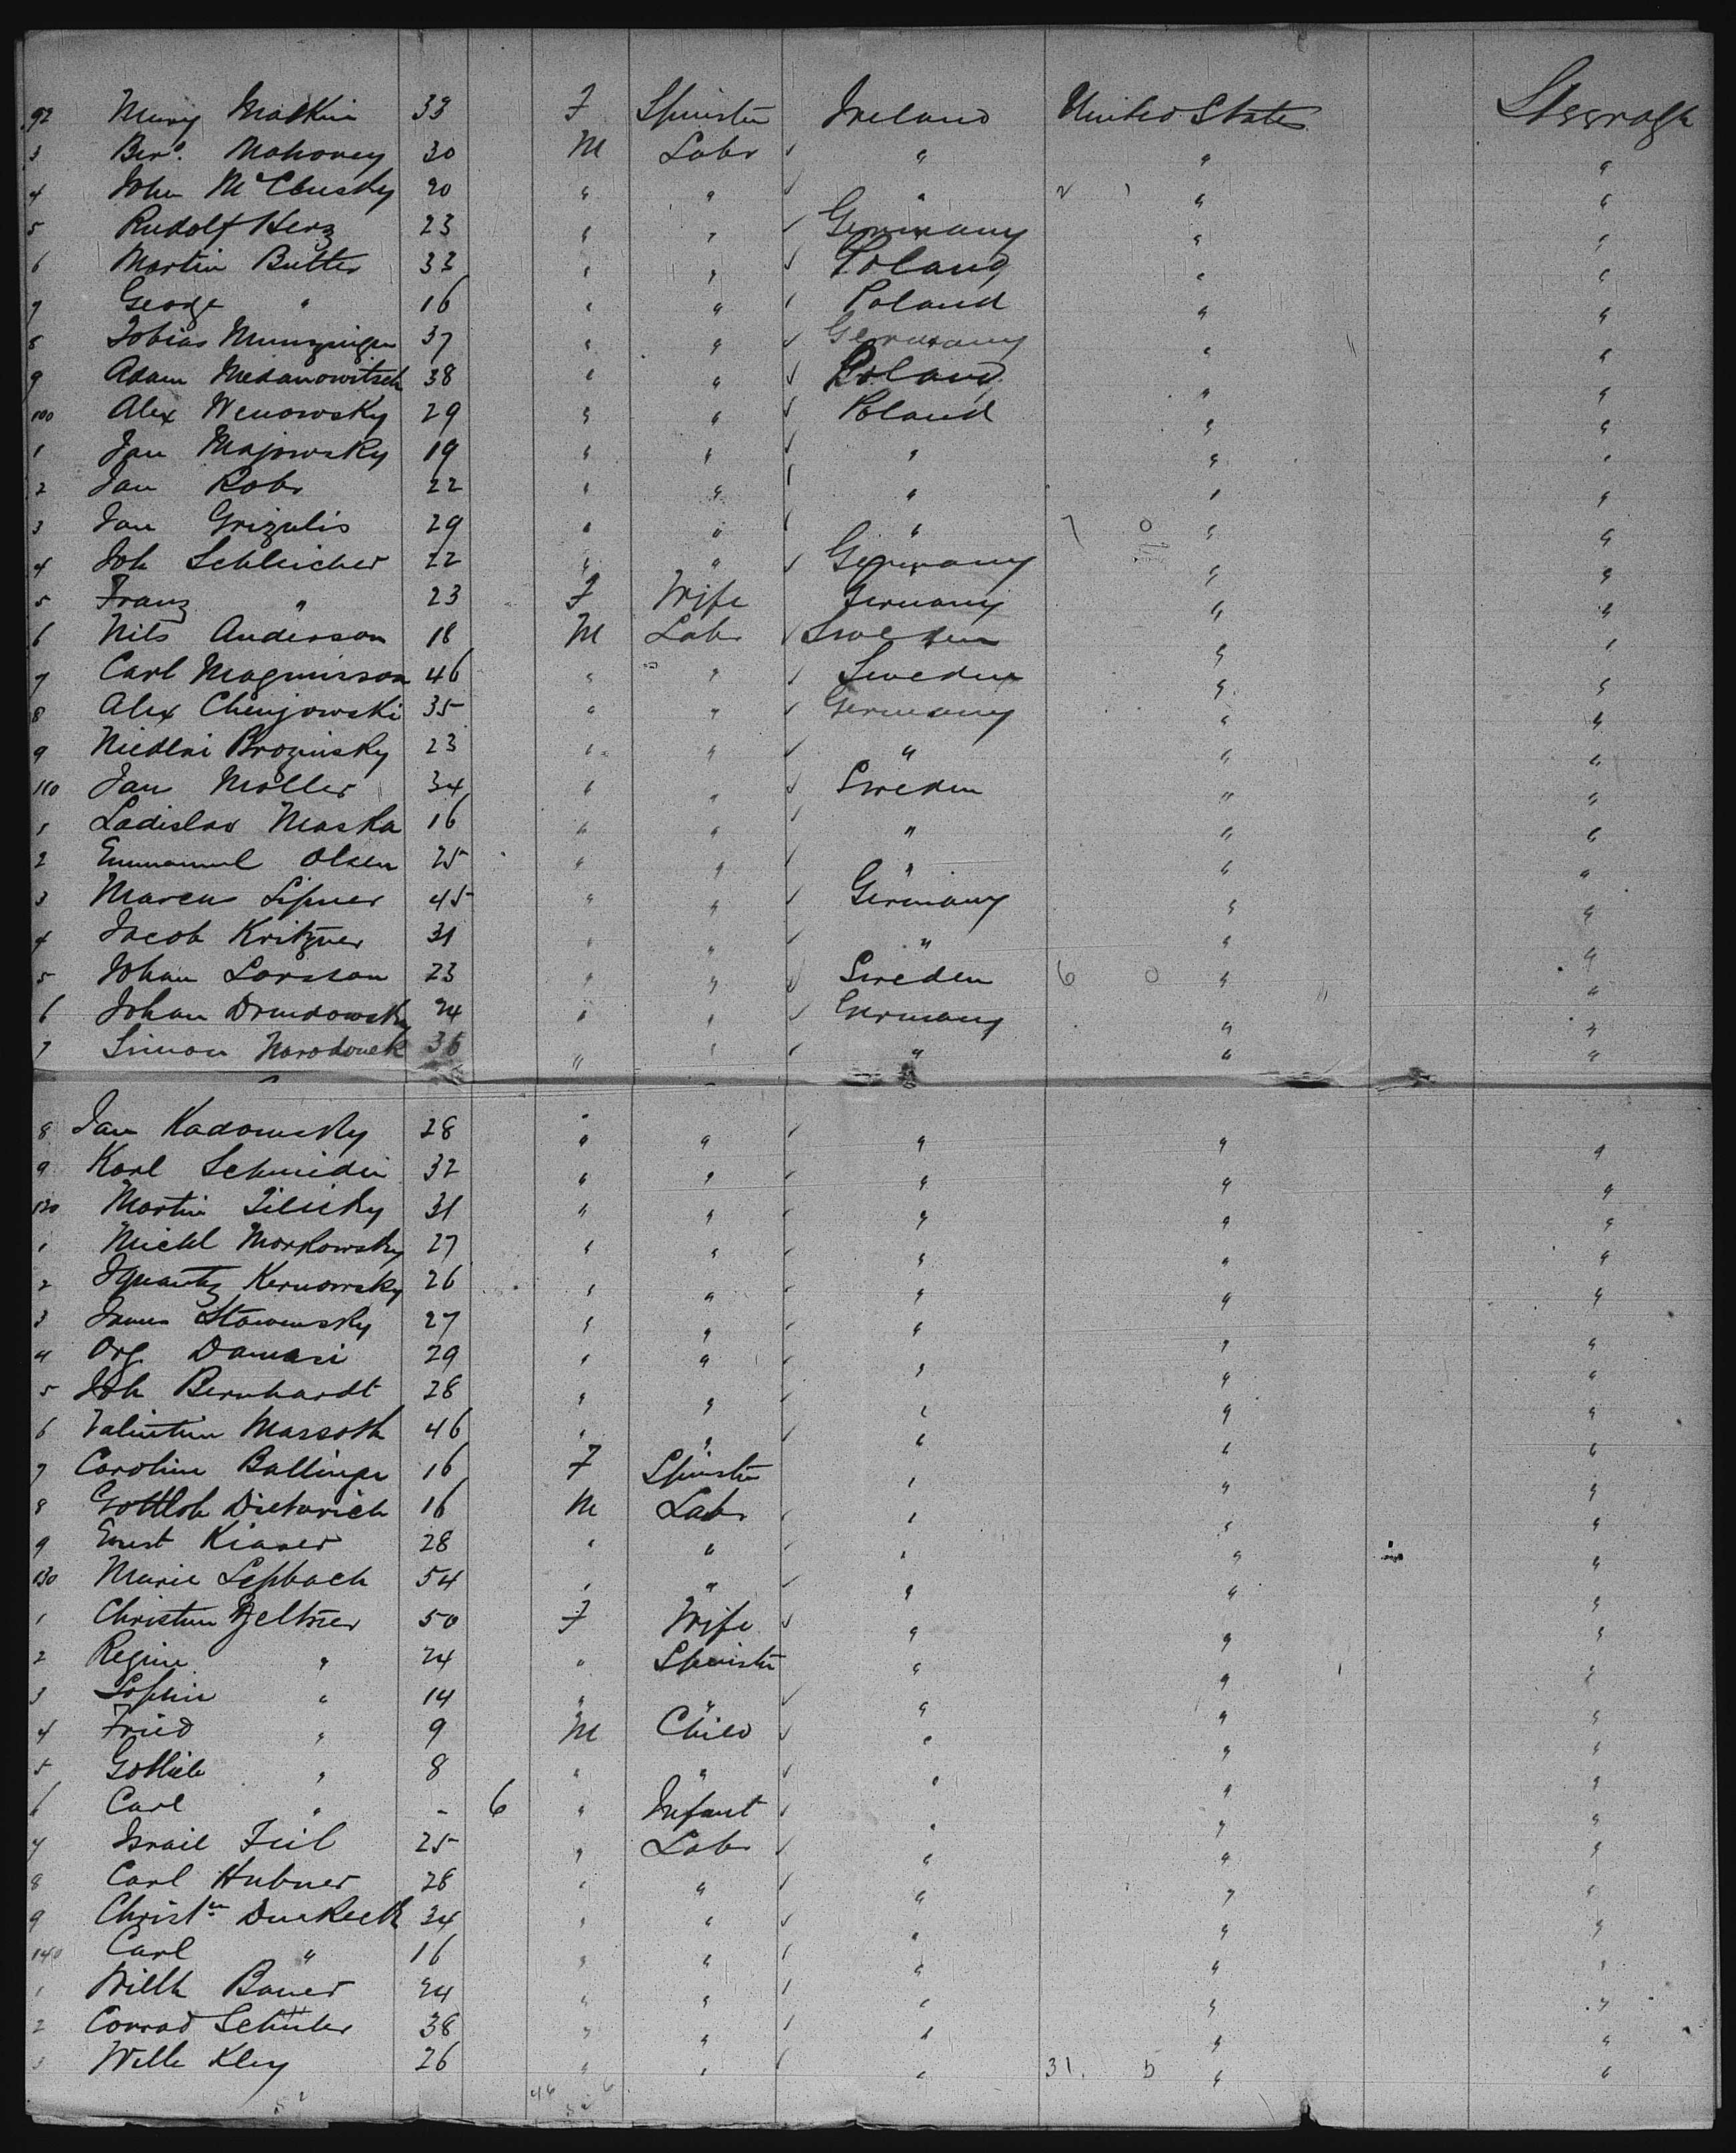 92 Mary Malkin 33 F Spinster Ireland United States Steerage
3 Bend. Mahoney 30 M Labr ✓ " " "
4 John McClusky 20 " " ✓ " " "
5 Rudolf Herz 23 " " ✓ Germany " "
6 Martin Butter 33 " " ✓ Poland " "
7 George " 16 " " ✓ Poland " "
8 Tobias Munzinger 37 " " ✓ Germany " "
9 Adam Medanowitsch 38 " " ✓ Poland " "
100 Alex Wenowsky 29 " " ✓ Poland " "
1 Jan Majowsky 19 " " ✓ " " "
2 Jan Robr 22 " " ✓ " " "
3 Jan Grizulis 29 " " ✓ " 7 0 " "
4 Joh Schleicher 22 " " ✓ Germany " "
5 Franz " 23 F Wife Germany " "
6 Nils Anderson 18 M Labr ✓ Sweden " "
7 Carl Magnusson 46 " " ✓ Sweden " "
8 Alex Chenjowski 35 " " ✓ Germany " "
9 Broginsky 23 " " ✓ " " "
110 Jan Moller 34 " " ✓ Sweden " "
1 Ladislav Maska 16 " " ✓ " " "
2 Emmanuel Olsen 25 " " ✓ " " "
3 Marcus Lipner 45 " " ✓ Germany " "
4 Jacob Kritzner 31 " " ✓ " " "
5 Johan Larsson 23 " " ✓ Sweden 6 0 " "
6 Johan Drundowsky 24 " " ✓ Germany " "
7 Simon Narodouck 36 " " ✓ " " "
8 Jan Kadowsky 28 " " ✓ " " "
9 Karl Schmidin 32 " " ✓ " " "
120 Martin Silicky 31 " " ✓ " " "
1 Michl Morkowsky 27 " " ✓ " " "
2 Ignantz Kernowsky 26 " " ✓ " " "
3 James Stawensky 27 " " ✓ " " "
4 Org. Damasi 29 " " ✓ " " "
5 Joh Bernhardt 28 " " ✓ " " "
6 Valentin Massoth 46 " " ✓ " " "
7 Caroline Ballinger 16 F Spinster " " "
8 Gottlob Dietarich 16 M Labr ✓ " " "
9 Ernst Kiaser 28 " " ✓ " " "
130 Marie Lepbach 54 " " ✓ " " "
1 Christine Zeltner 50 F Wife ✓ " " "
2 Regine " 24 " Spinster " " "
3 Sophie " 14 " " ✓ " " "
4 Fried " 9 M Child ✓ " " "
5 Gottlieb " 8 " " ✓ " " "
6 Carl " - 6 " Infant ✓ " " "
7 Israil Feil 25 " Labr ✓ " " "
8 Carl Hubner 28 " " ✓ " " "
9 Christn Duckeck 34 " " ✓ " " "
140 Carl " 16 " " ✓ " " "
1 Willh Bauer 24 " " ✓ " " "
2 Conrad Schüler 38 " " ✓ " " "
3 Wilh Kley 26 " " ✓ " 31. 5 " "